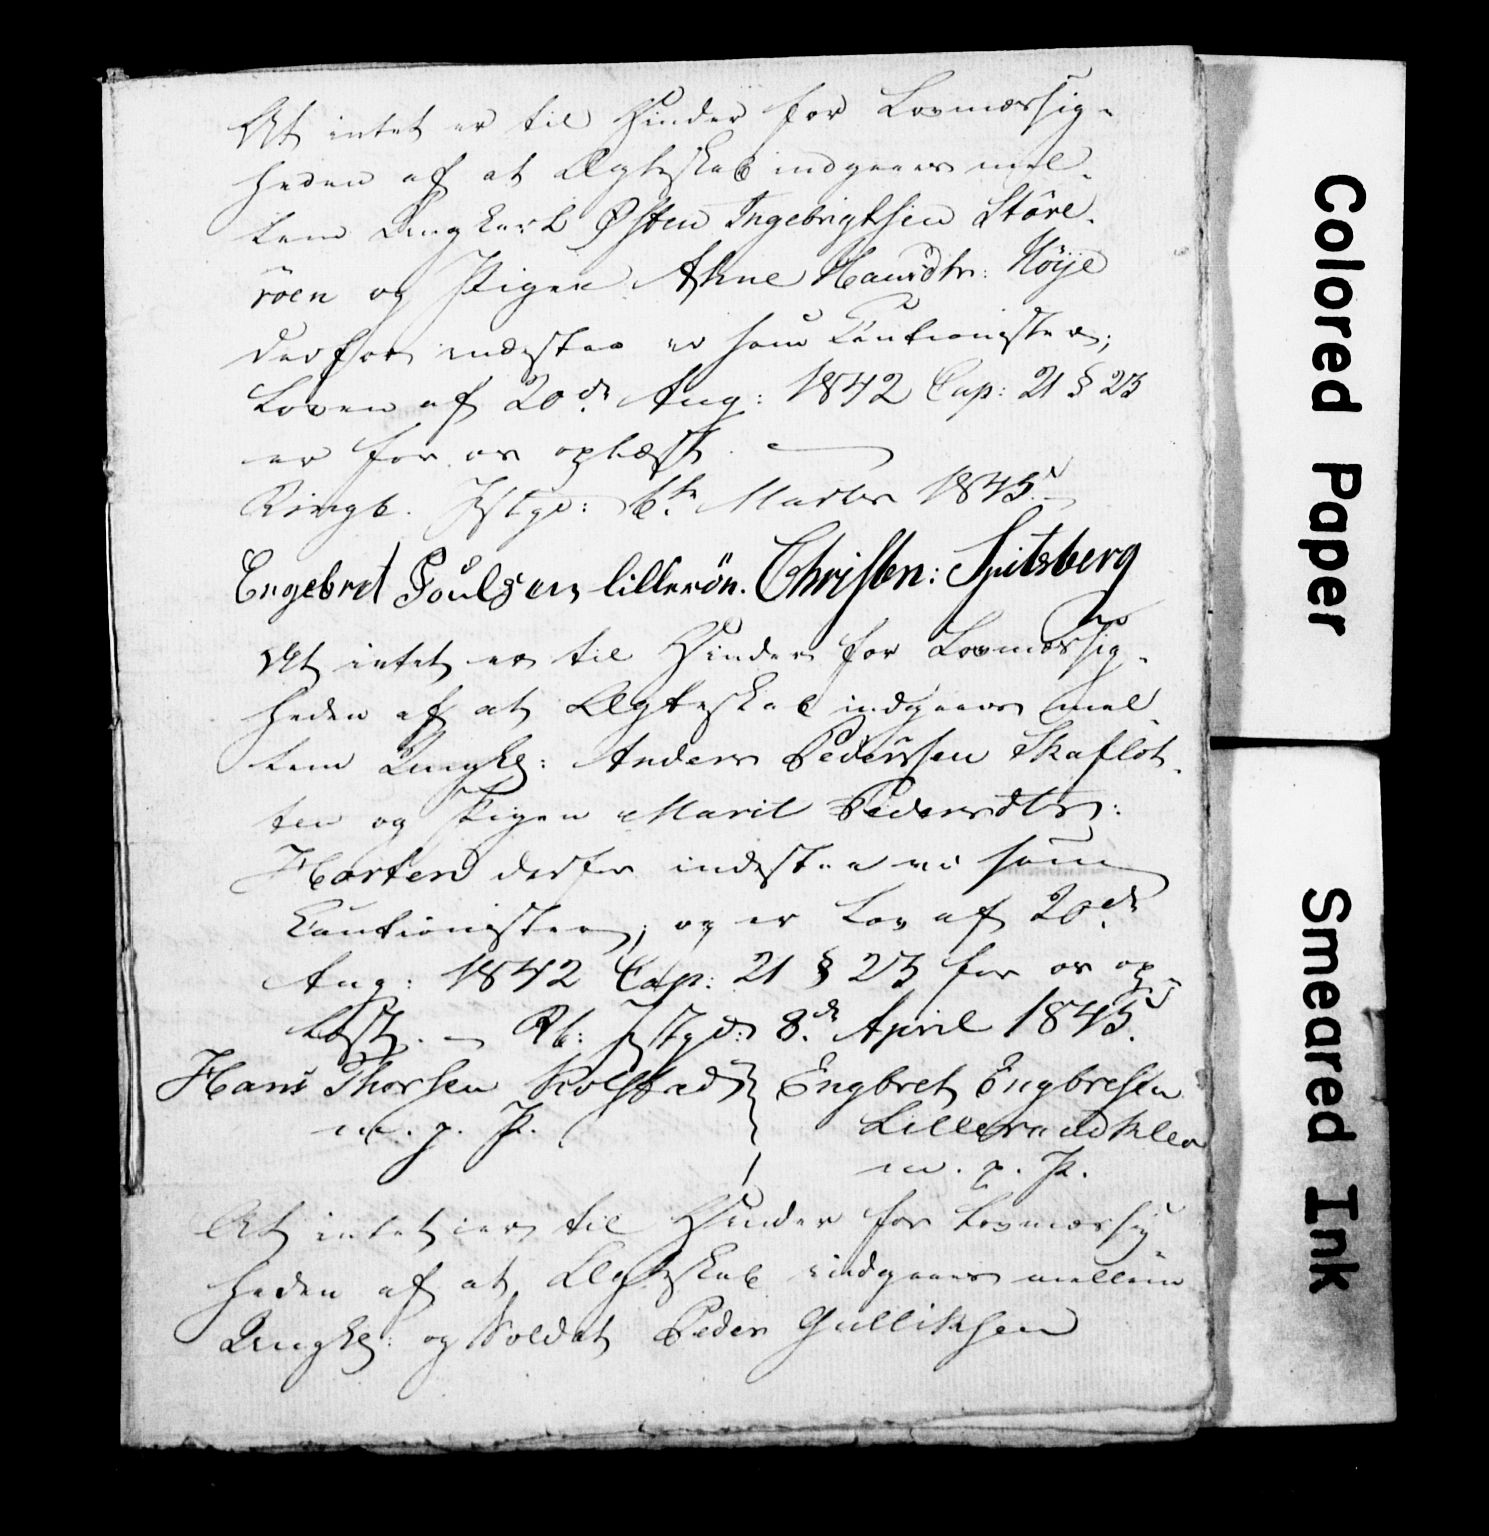 At intet er til Hinder for Lovmæssig-
heden af at Ægteskab indgaaes mel-
lem Ungkarl Østen Ingebrigtsen Store-
röen og Pigen Anne Hansdtr: Höye
derfor indestaa vi som Cautionister;
Loven af 20de Aug: 1842 Cap: 21 § 23
er for os oplæst.
Ringb. Pstgd: 6te Marts 1845
Engebret Poulsen lillerön. Christen: Spitsberg
At intet er til Hinder for Lovmæssig-
heden af at Ægteskab indgaaes mel-
lem Ungk: Anders Pedersen Skaflot-
ten og Pigen Marit Pedersdtr:
derfor indestaa vi som
Cautionister; og er Lov af 20de
Aug: 1842 Cap: 21 § 23 for os op-
læst. – Rb: Pstgd: 8de April 1845.
Hans Thorsen Kolstad } Engbret Engbretsen
m. p. P. Lillerudklev
m. p. P.
At intet er til Hinder for Lovmæssig-
heden af at Ægteskab indgaaes mellem
Ungk: og Soldat Peder Gulliksen
Colored Paper
Smeared Ink